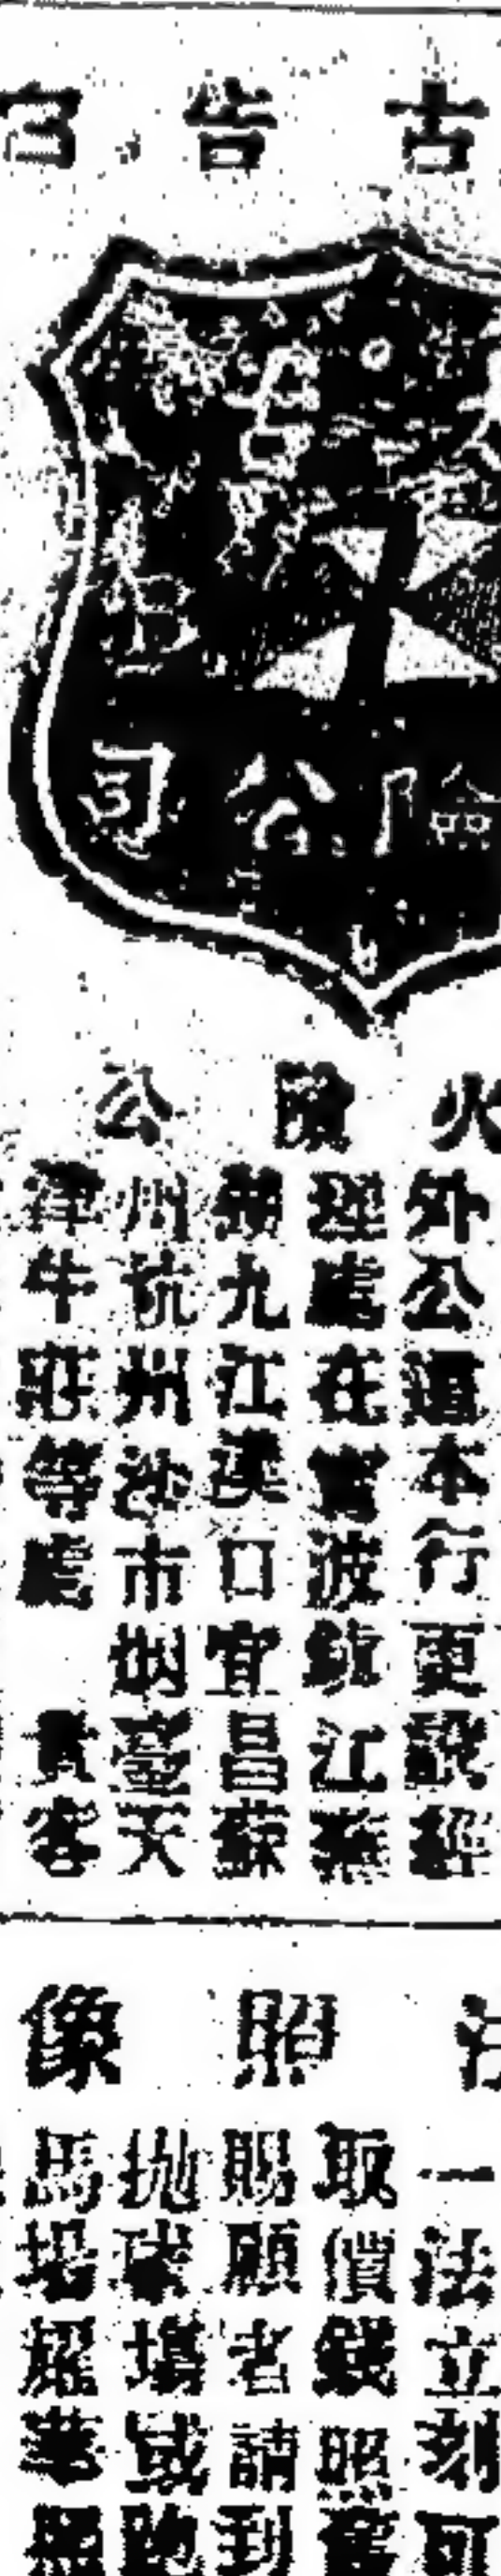 古告
險公司
火險公
外公道本行更設經
理處在寧波鎮江蕪
湖九江漢口宜昌蘇
州杭州沙市烟臺天
津牛莊等處 貴客
照像
一法立刻可
取價錢照舊
賜顧者請到
拋球場或跑
馬場耀華照